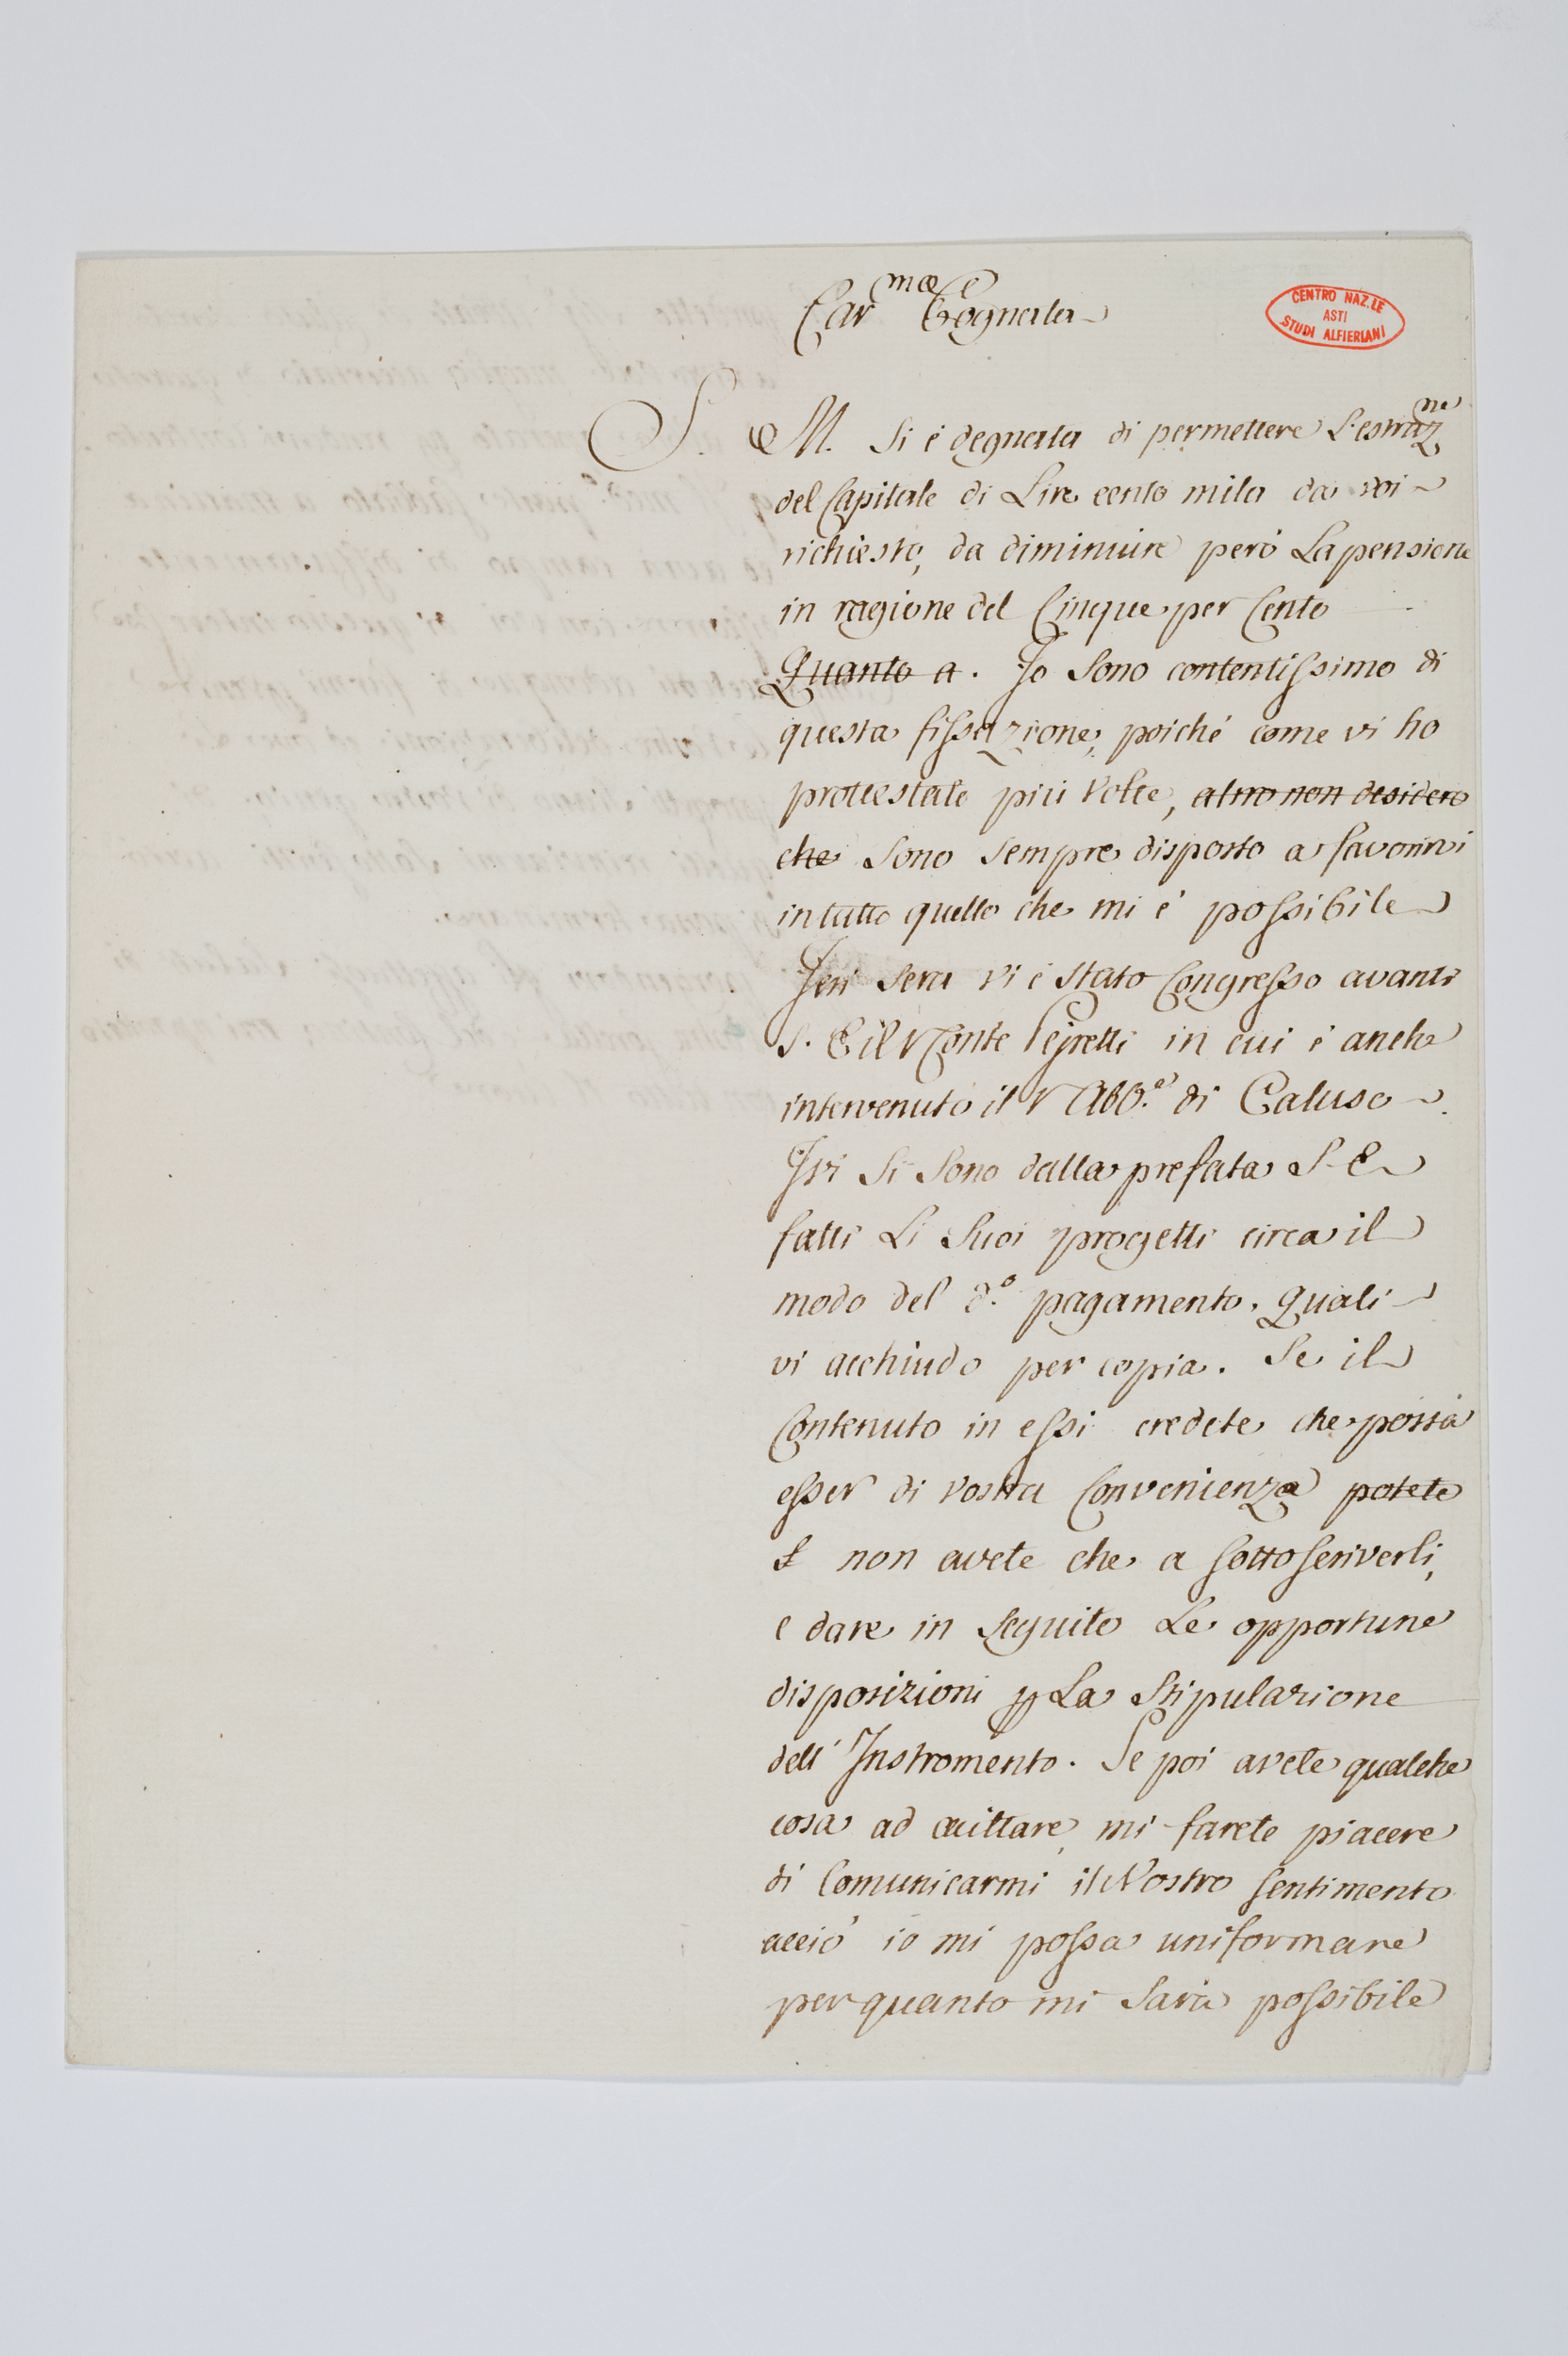 Car.ma Cognata
CENTRO NAZ.LE
ASTI
STUDI ALFIERIANI
S. M. Si è degnata di permettere L'estraz.ne
del Capitale di Lire cento mila da voi
richiesto, da diminuire però La pensione
in ragione del Cinque per Cento
Quanto a. Io Sono contentissimo di
questa fissazione, poiché come vi ho
protestato più Volte, altro non desidero
che Sono sempre disposto a favorirvi
in tutto quello che mi è possibile
Jeri Sera vi è Stato Congresso avanti
S. E il Conte Pejretti in cui è anche
intervenuto il Abb.e di Caluso
Ivi Si Sono dalla prefata S. E
fatti Li Suoi progetti circa il
modo del d.o pagamento, quali
vi acchiudo per copia. Se il
Contenuto in essi credete che possa
esser di vostra Convenienza potete
non avete che a sottoscriverli,
e dare in Seguito Le opportune
disposizioni p La Stipulazione
dell' Instromento. Se poi avete qualche
cosa ad excittare, mi farete piacere
di Comunicarmi il Vostro sentimento
acciò io mi possa uniformare
per quanto mi Sarà possibile